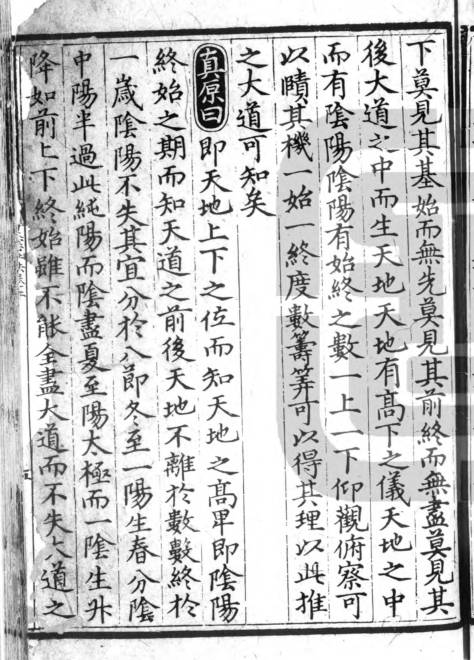 下莫見其基始而無先莫見其前終而無盡莫見其
後大道之中而生天地天地有髙下之儀天地之中
而有陰陽陰陽有始終之數一上一下仰觀俯察可
以賾其機一始一終度數籌筭可以得其理以此推
之大道可知矣
真原曰即天地上下之位而知天地之髙卑即陰陽
終始之期而知天道之前後天地不離於數數終於
一歲陰陽不失其宜分於八節冬至一陽生春分陰
中陽半過此純陽而陰盡夏至陽太極而一陰生升
降如前上下終始雖不能全盡大道而不失大道之
五